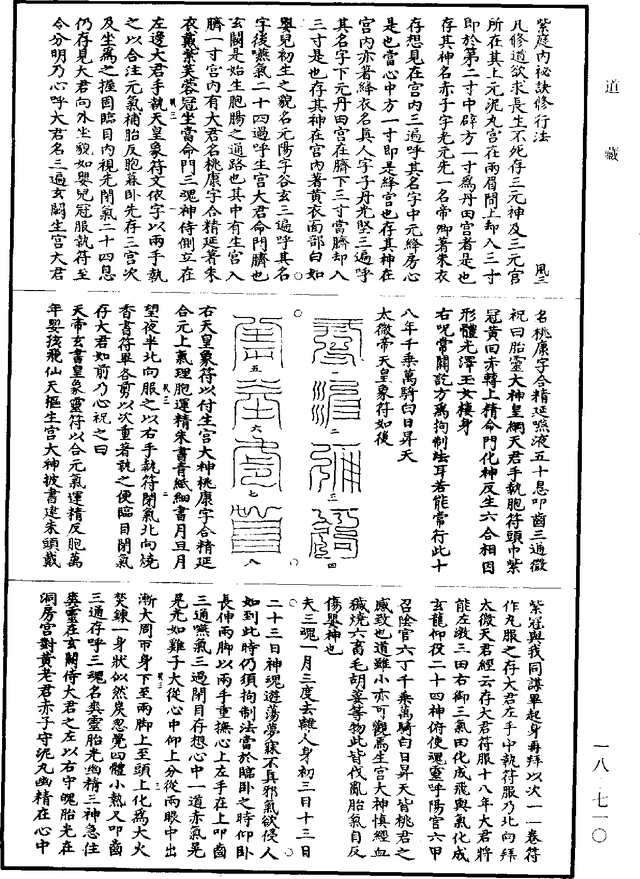 道藏
紫庭內祕訣修行法
風三
凡修道欲求長生不死存三元神及三元宮
所在其上元泥丸宮在兩眉間上却入三寸
即於第二寸中辟方一寸爲丹田宮者是也
存其神名赤子字元先一名帝卿著朱衣
存想見在宮內三遍呼其名字中元絳房心
是也當心中方一寸即是絳宮也存其神在
宮內亦著絳衣名真人字子丹光堅三遍呼
其名字下元丹田宮在臍下三寸當臍却入
三寸是也存其神在宮內著黃衣面部白如
嬰兒初生之貌名元陽字谷玄三遍呼其名
字後嚥氣二十四過呼生宮大君命門臍也
玄關是始生胞腸之通路也其中有生宮入
臍一寸宮內有大君名桃康字合精延著朱
衣戴紫芙蓉冠坐當命門三魂神侍側立在
左邊大君手執天皇象符文依字以兩手執
之以合注元氣補胎反胞暮卧先存三宮次
及坐爲之握固臨目內視先閉氣二十四息
仍存見大君向外坐貌如嬰兒冠服執符至
令分明乃心呼大君名三遍玄關生宮大君
名桃康字合精延嚥液五十息叩齒三通微
祝曰胎靈大神皇綱天君手執胞符頭巾紫
冠黃回赤轉上精命門化神反生六合相因
形體光澤玉女棲身
右呪常關訖方爲拘制法耳若能常行此十
八年千乘萬騎白日昇天
太微帝天皇象符如後
一
二
三
四
五
六
七
八
右天皇象符以付生宮大神桃康字合精延
合元上氣理胞運精朱書青紙細書月旦月
望夜半北向服之以右手執符閉氣北向燒
香書符畢各剪以次重著執之便臨目閉氣
存大君如前乃心祝之曰
天帝玄書皇象靈符以合元氣運精反胞萬
年嬰孩飛仙天樞生宮大神披書建朱頭戴
紫冠與我同講畢起身再拜以次一一卷符
作丸服之存大君左手中執符服乃北向拜
太微天君經云存大君符服十八年大君將
能左激三田右御三氣田化成飛輿氣化成
玄龍仰役二十四神俯使魂靈呼陽官六甲
召陰官六丁千乘萬騎白日昇天皆桃君之
感致也道雖小亦可觀焉生宮大神慎經血
穢燒六畜毛胡荽等物此皆伐亂胎氣自反
傷嬰神也
夫三魂一月三度去離人身初三日十三日
二十三日神魂遊蕩夢寐不真邪氣欲侵人
如到此時仍須拘制法當於臨卧之時仰卧
長伸兩脚以兩手重撫心上左手在上叩齒
三通嚥氣三過閉目存想心中一道赤氣晃
晃光如雞子大從心中仰上分從兩眼中出
漸大周帀身下至兩脚上至頭上化爲大火
焚鍊一身狀似然炭忽覺四體小熱又叩齒
三通存呼三魂名爽靈胎光幽精三神急住
爽靈在玄關侍大君之左以右守魄胎光在
洞房宮對黃老君赤子守泥丸幽精在心中
一八·七一〇